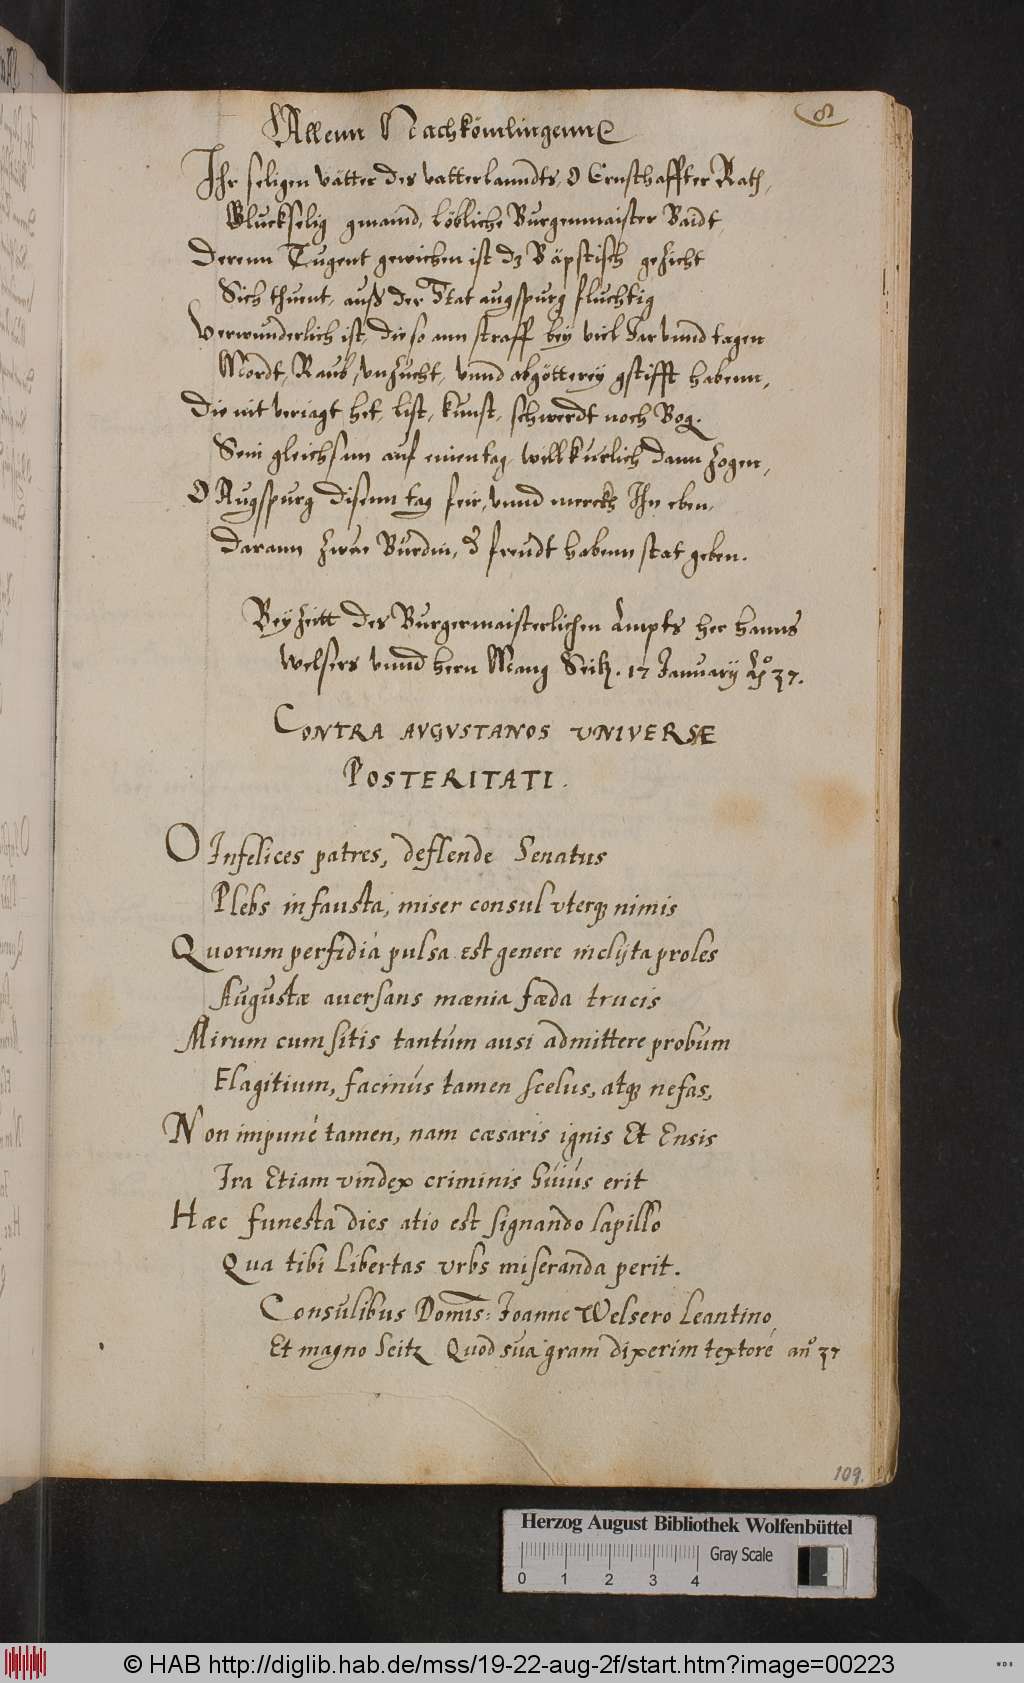 8
Allenn Nachkömlingenn
Ihr seligen vätter des vatterlanndts, O Ernsthaffter Rath,
Gluckselig gmaind, löbliche Burgenmaister Baidt,
Derenn Tugent gewichen ist dz Bäpstisch gezicht
Sich thuent, auß der Stat augspurg fluchtig
Verwunderlich ist, die so ann straff bey viel Jar vnnd tagen
Mordt, Raub, vnzucht, vnnd abgötterey gstifft habenn,
Die nit veriagt het, list, kunst, schwerdt noch Bog.
Sein gleichsam auf einen tag willkurlich dann zogen,
O Augspurg disenn tag feir, vnnd merckh Ihn eben,
Darann zwen Burdin, d freudt habenn stat geben.
Bey Zeitt des Burgermaisterlichen Ampts her Hanns
Welsers vnnd hern Mang Seitz. 17 January Ao 37.
CONTRA AVGVSTANOS VNIVERSÆ
POSTERITATI.
O Infelices patres, deflende Senatus
Plebs infausta, miser consul vterq3 nimis
Quorum perfidiá pulsa est genere inclÿta proles
Augustæ auersans mænia fæda trucis
Mirum cum sitis tantúm ausi admittere probúm
Flagitium, facinús tamen scelus, atq3 nefas,
Non impuné tamen, nam cæsaris ignis Et Ensis
Ira Etiam vindex criminis húiús erit
Hæc funesta dies atio est signando lapillo
Qua tibi Libertas vrbs miseranda perit.
Consulibus Domis: Joanne Welsero Leantino,
Et magno Seitz Quod sua gram dixerim textoré ano 37
109.
Herzog August Bibliothek Wolfenbüttel
Gray Scale
0 1 2 3 4
© HAB http://diglib.hab.de/mss/19-22-aug-2f/start.htm?image=00223